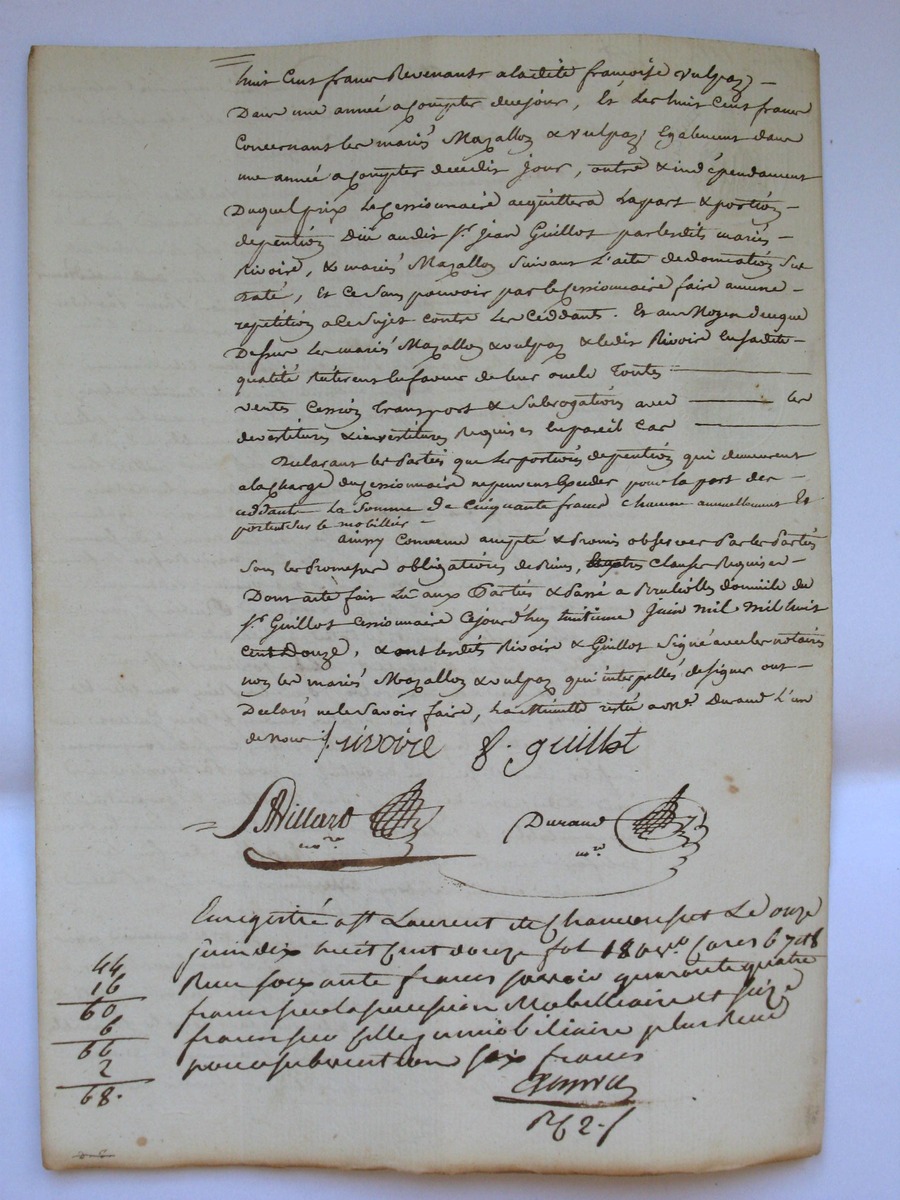 huit Cent francs Revenants a ladite françoise vulpaz
Dans une année a compter de ce jour, Et Les huit Cent francs
Concernant les mariés Mazallon & vulpaz Egalement dans
une année a compter de ce dit jour, outre & indépendament
Duquel prix Le Cessionnaire acquittera La part & portion
de pention Düe audit Sr. jean Guillot par lesdits mariés
Rivoire, & mariés Mazallon Suivant L'acte de donnation Sus
daté, Et Ce Sans pouvoir par le Cessionnaire faire aucune
repetition a Ce Sujet contre Les Céddants. Et au Moyen de ce que
Dessus Les mariés Mazallon & vulpaz & ledit Rivoire En sa dite
qualité En faveur de leur oncle Toutes
ventes Cession Transport & Subrogation avec les
devestitures & investitures Requises En pareil Cas
Declarant les Parties que Les portions de pention qui demeurent
a la Charge du Cessionnaire ne peuvent Exceder pour la part des
céddants La Somme de Cinquante francs chacune annuellement Et
portent Sur le mobillier
ainsy Convenu accepté & Promis observer Par les Parties
Sous les Promesses obligations de Biens, Clauses Requises
Dont acte fait Lû aux Parties & Passé a domicile du
Sr. Guillot Cessionnaire Cejourd'huy huitieme Juin mil mil huit
Cent Douze, & ont lesdits Rivoire & Guillot Signé avec les notaires
non les mariés Mazallon & vulpaz qui interpellés de signer ont
Declarés ne le Savoir faire, La Minutte restée a Me. Durand L'un
de Nous J. rivoire f. guillot
Billard Durand
nore. nore.
Enregistré a St Laurent de Chamousset Le onze
juin dix huit Cent douze fol 180 vo. Cases 6 7 et 8
44 Reçu soixante francs savoir quarante quatre
16 francs pour la cession Mobilliaire et seize
60 francs pour celle immobiliaire plus Reçu
6 pour subvention six francs
66
2
68.